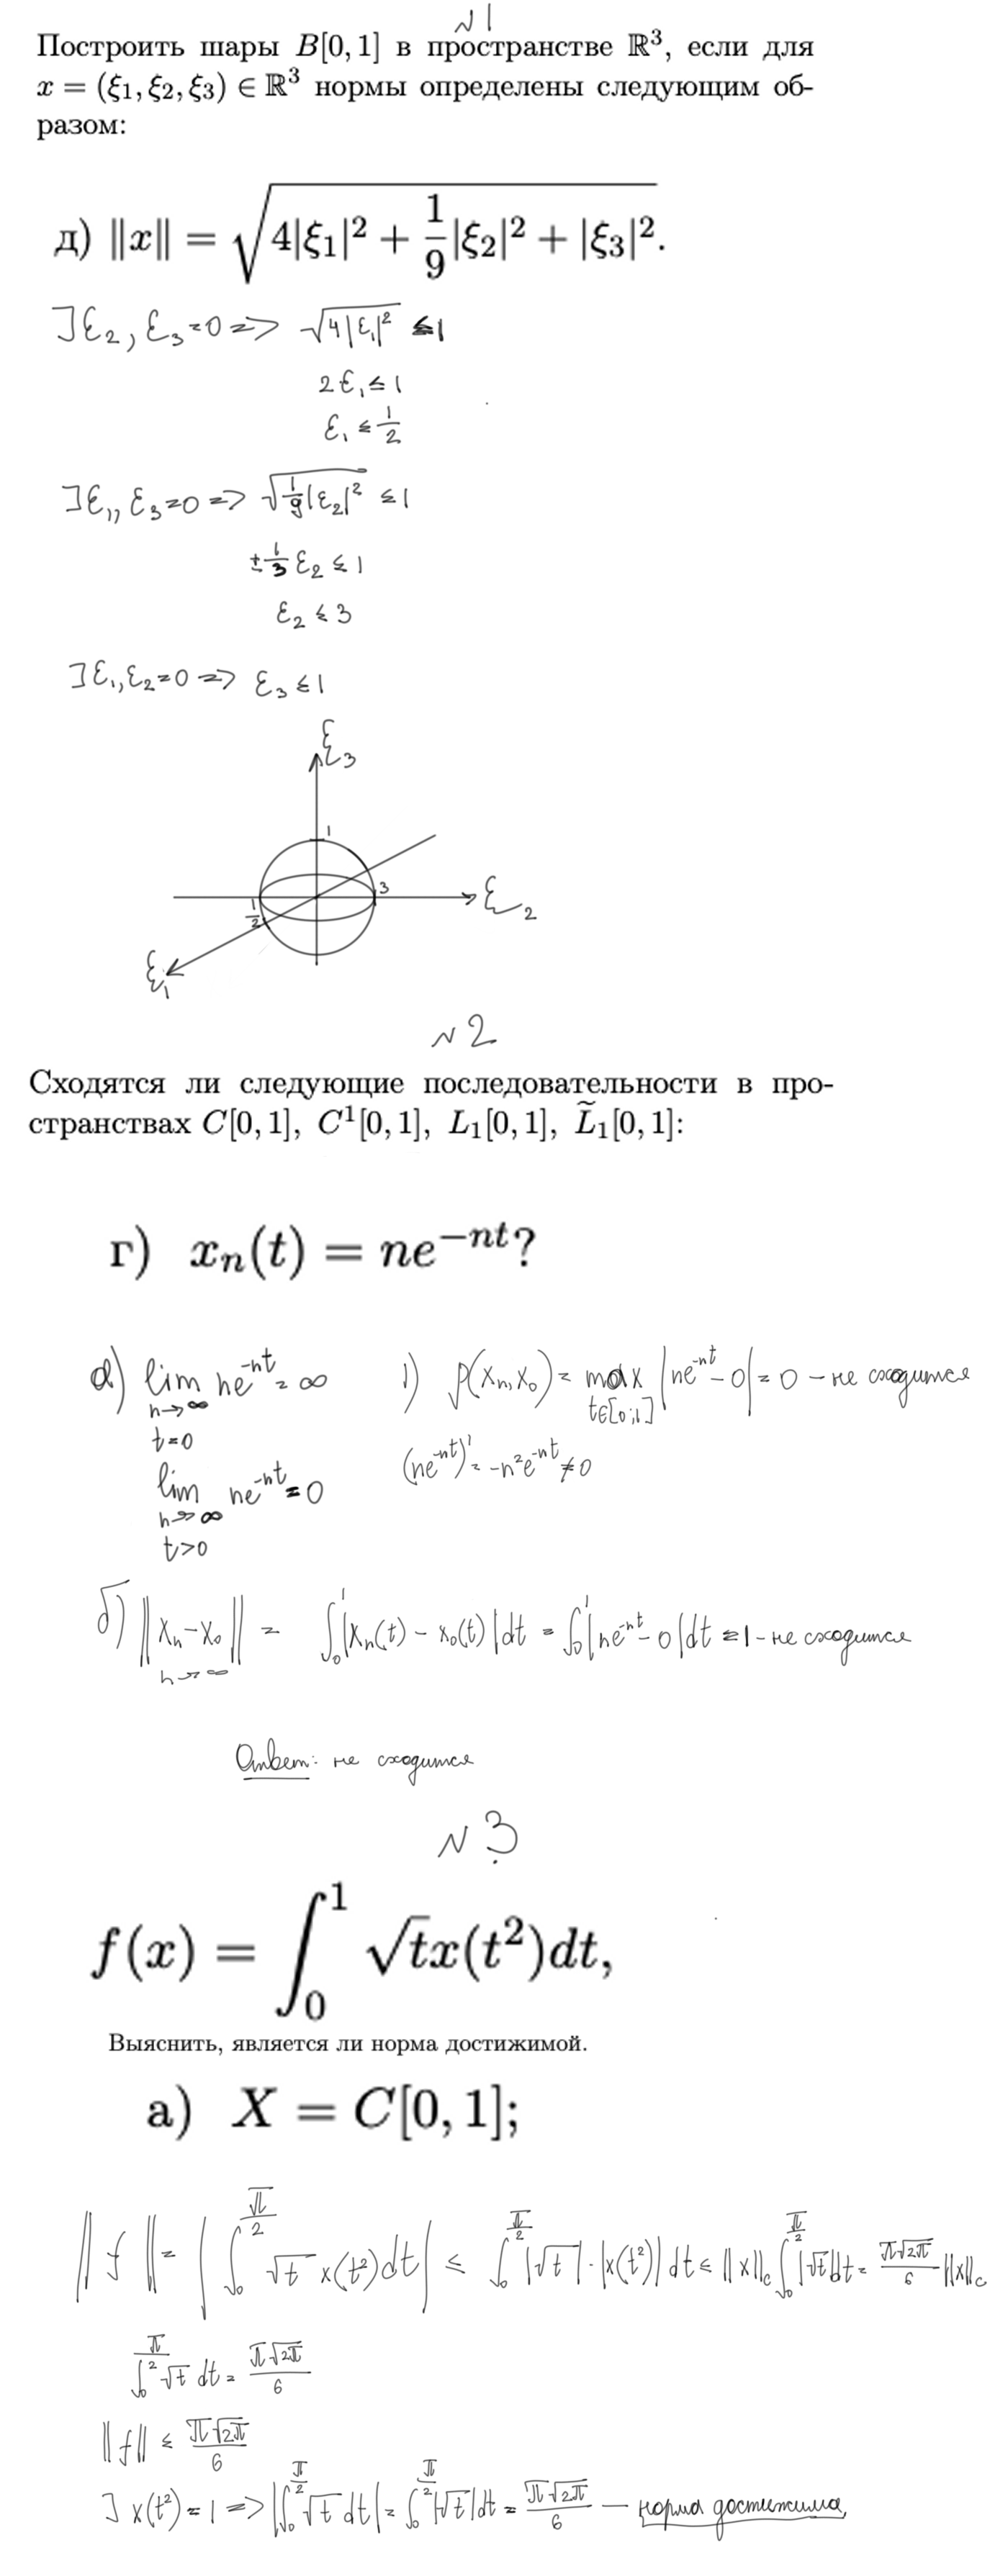 N 1
Построить шары B[0, 1] в пространстве ℝ³, если для
x = (ξ₁, ξ₂, ξ₃) ∈ ℝ³ нормы определены следующим об-
разом:
д) ‖x‖ = √(4|ξ₁|² + 1/9|ξ₂|² + |ξ₃|²).
∃ ℰ₂, ℰ₃ = 0 => √(4|ℰ₁|²) ≤ 1
2ℰ₁ ≤ 1
ℰ₁ ≤ 1/2
∃ ℰ₁, ℰ₃ = 0 => √(1/9|ℰ₂|²) ≤ 1
± 1/3 ℰ₂ ≤ 1
ℰ₂ ≤ 3
∃ ℰ₁, ℰ₂ = 0 => ℰ₃ ≤ 1
ξ₃
1
3
ξ₂
1/2
ξ₁
N 2
Сходятся ли следующие последовательности в про-
странствах C[0, 1], C¹[0, 1], L₁[0, 1], L̃₁[0, 1]:
г) xₙ(t) = ne⁻ⁿᵗ?
а) lim ne⁻ⁿᵗ = ∞ 1) ρ(xₙ, x₀) = max |ne⁻ⁿᵗ - 0| = 0 - не сходится
n→∞ t∈[0;1]
t=0
(ne⁻ⁿᵗ)' = -n²e⁻ⁿᵗ ≠ 0
lim ne⁻ⁿᵗ = 0
n→∞
t>0
б) ‖xₙ - x₀‖ = ∫₀¹ |xₙ(t) - x₀(t)|dt = ∫₀¹ |ne⁻ⁿᵗ - 0|dt = 1 - не сходится
n→∞
Ответ: не сходится
N 3
f(x) = ∫₀¹ √t x(t²)dt,
Выяснить, является ли норма достижимой.
а) X = C[0, 1];
‖f‖ = |∫₀^(π/2) √t x(t²)dt| ≤ ∫₀^(π/2) |√t|·|x(t²)|dt ≤ ‖x‖_c ∫₀^(π/2) |√t|dt = π√2π/6 ‖x‖_c
∫₀^(π/2) √t dt = π√2π/6
‖f‖ ≤ π√2π/6
∃ x(t²) = 1 => |∫₀^(π/2) √t dt| = ∫₀^(π/2) |√t|dt = π√2π/6 — норма достижима,